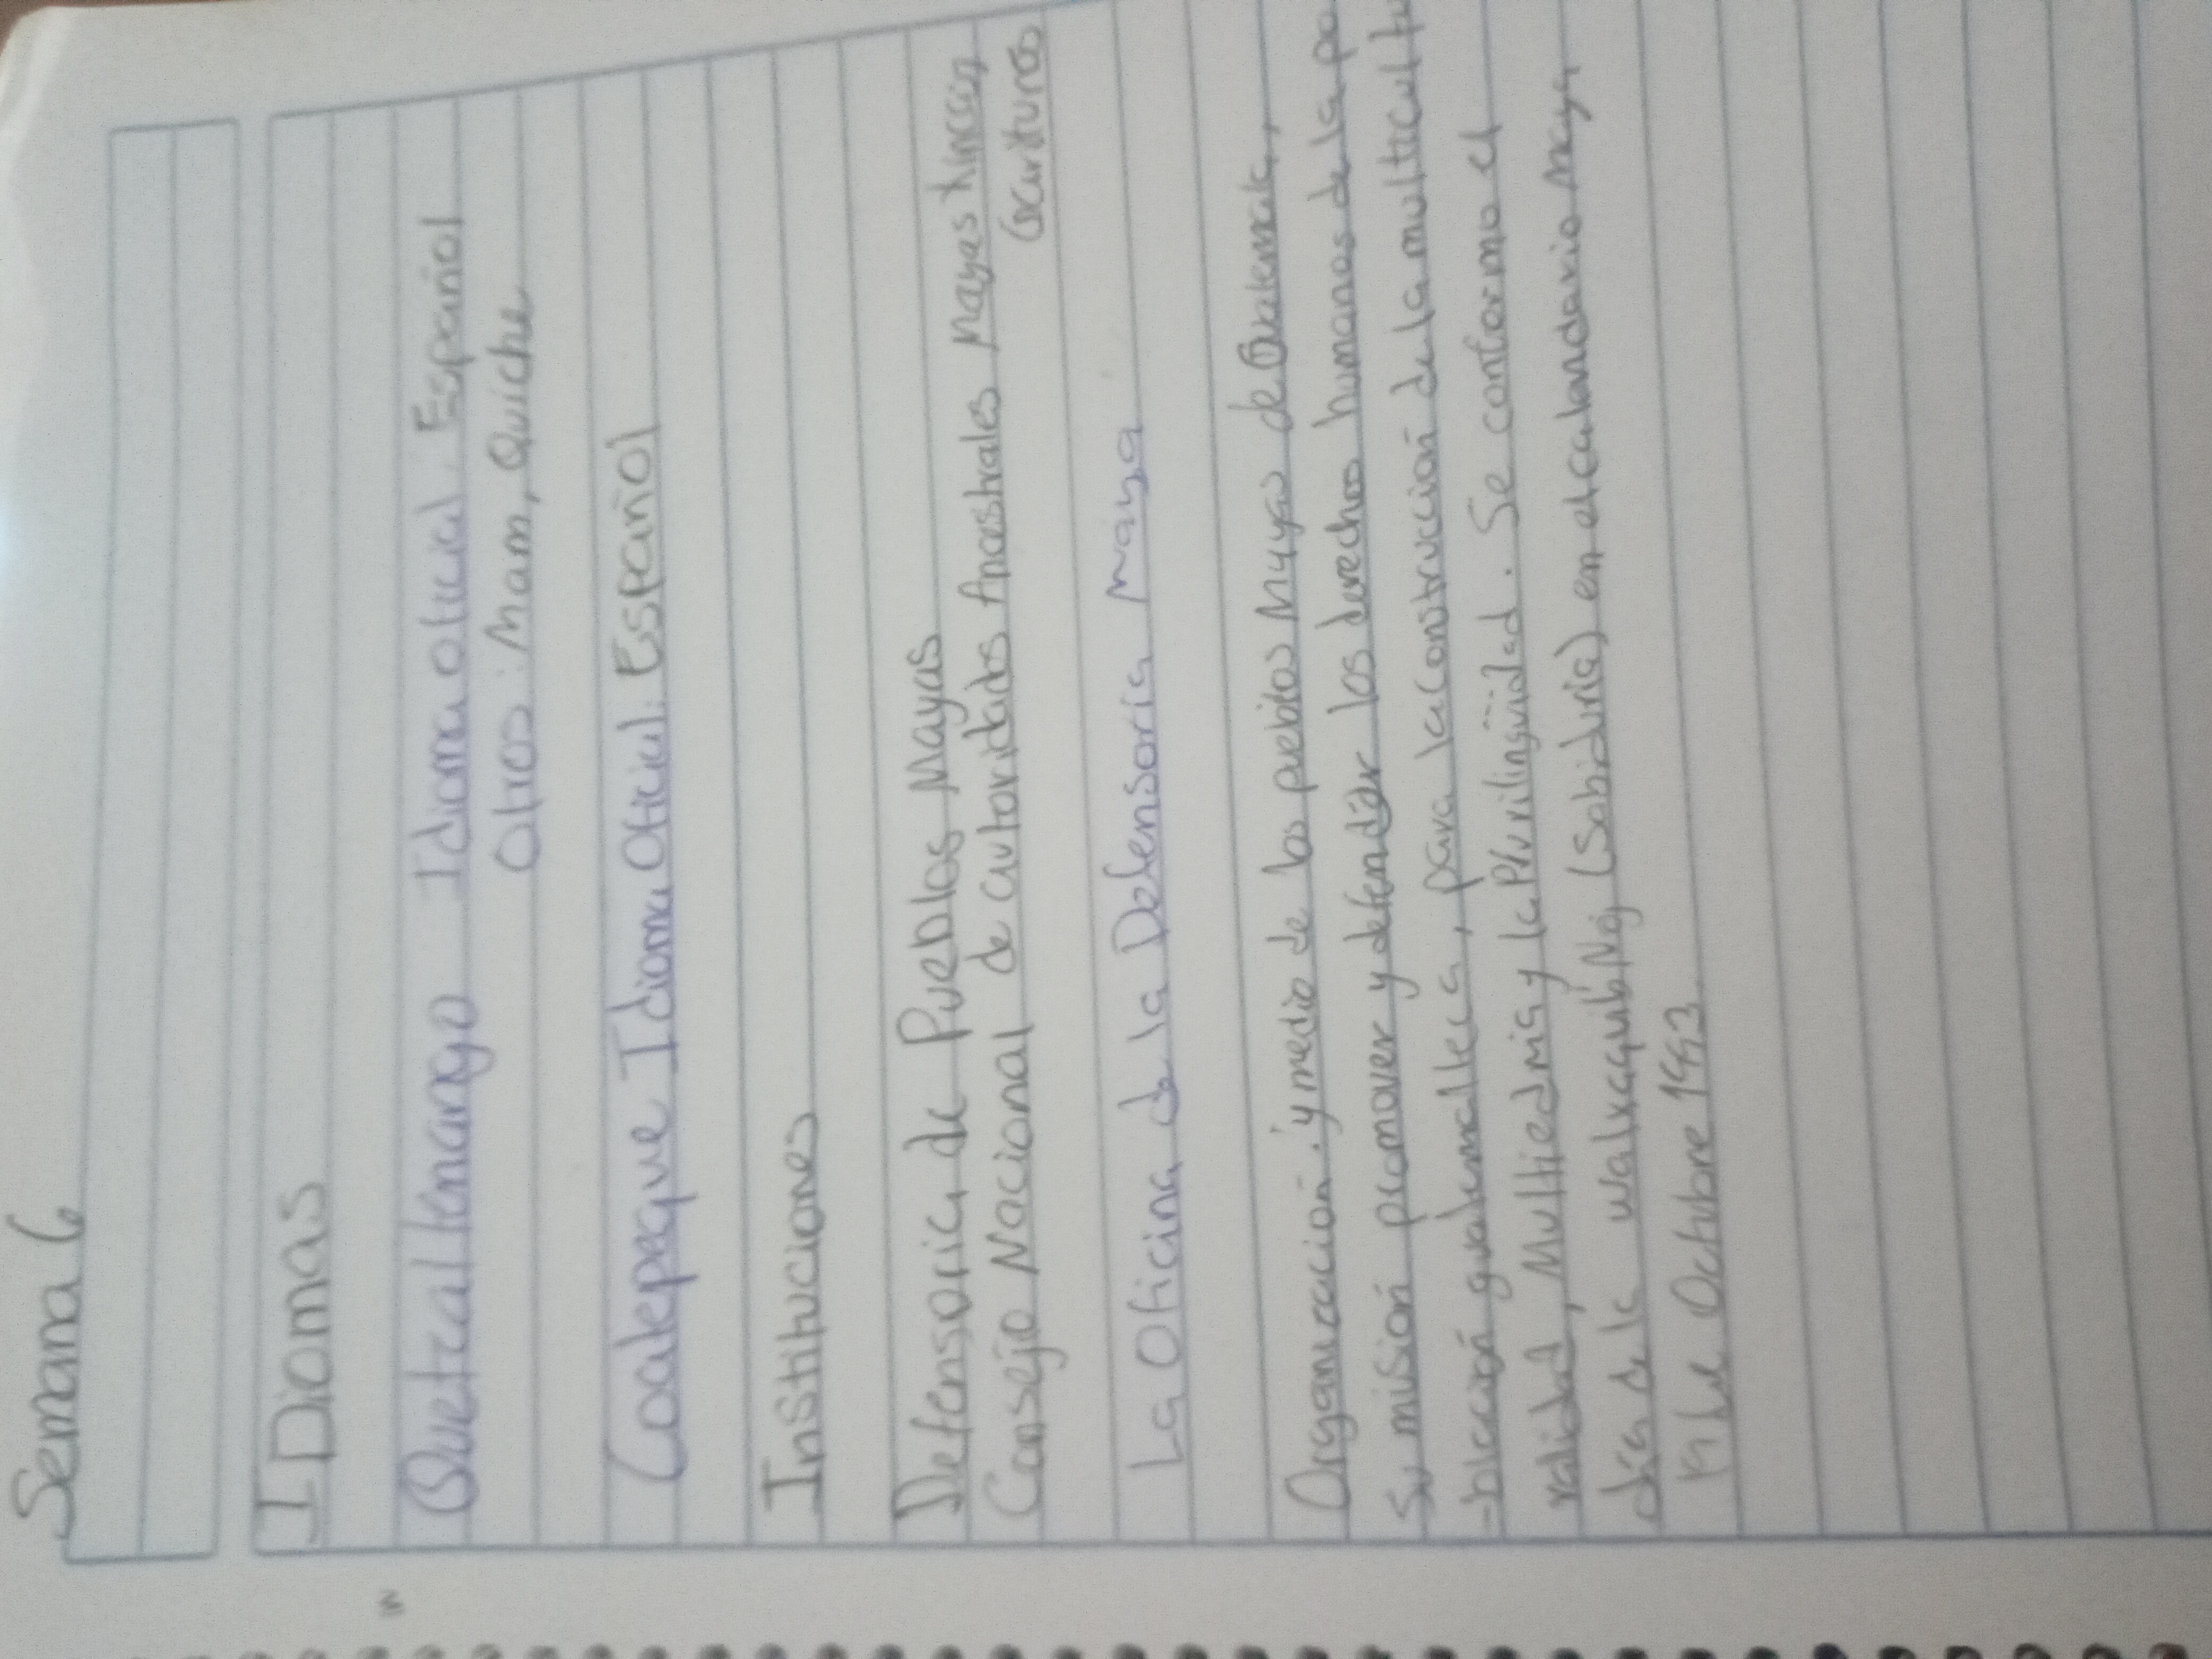 Semana 6
IDiomas
Quetzaltenango Idioma oficial Español
Otros: Mam, Quiche
Coatepeque Idioma Oficial: Español
Instituciones
Defensoria de Pueblos Mayas
Consejo Nacional de autoridades Ancestrales Mayas Xincas
Garifunas
La Oficina de la Defensoría Maya
Organización: y medio de los pueblos Mayas de Guatemala,
Su misión promover y defender los derechos humanos de la po
-blación guatemalteca, para la construcción de la multicultu
ralidad, Multiednia y la Plurilingüidad. Se conformo el
día de la Walxaquib' Noj (Sabiduria) en el calendario maya
de Octubre 1993